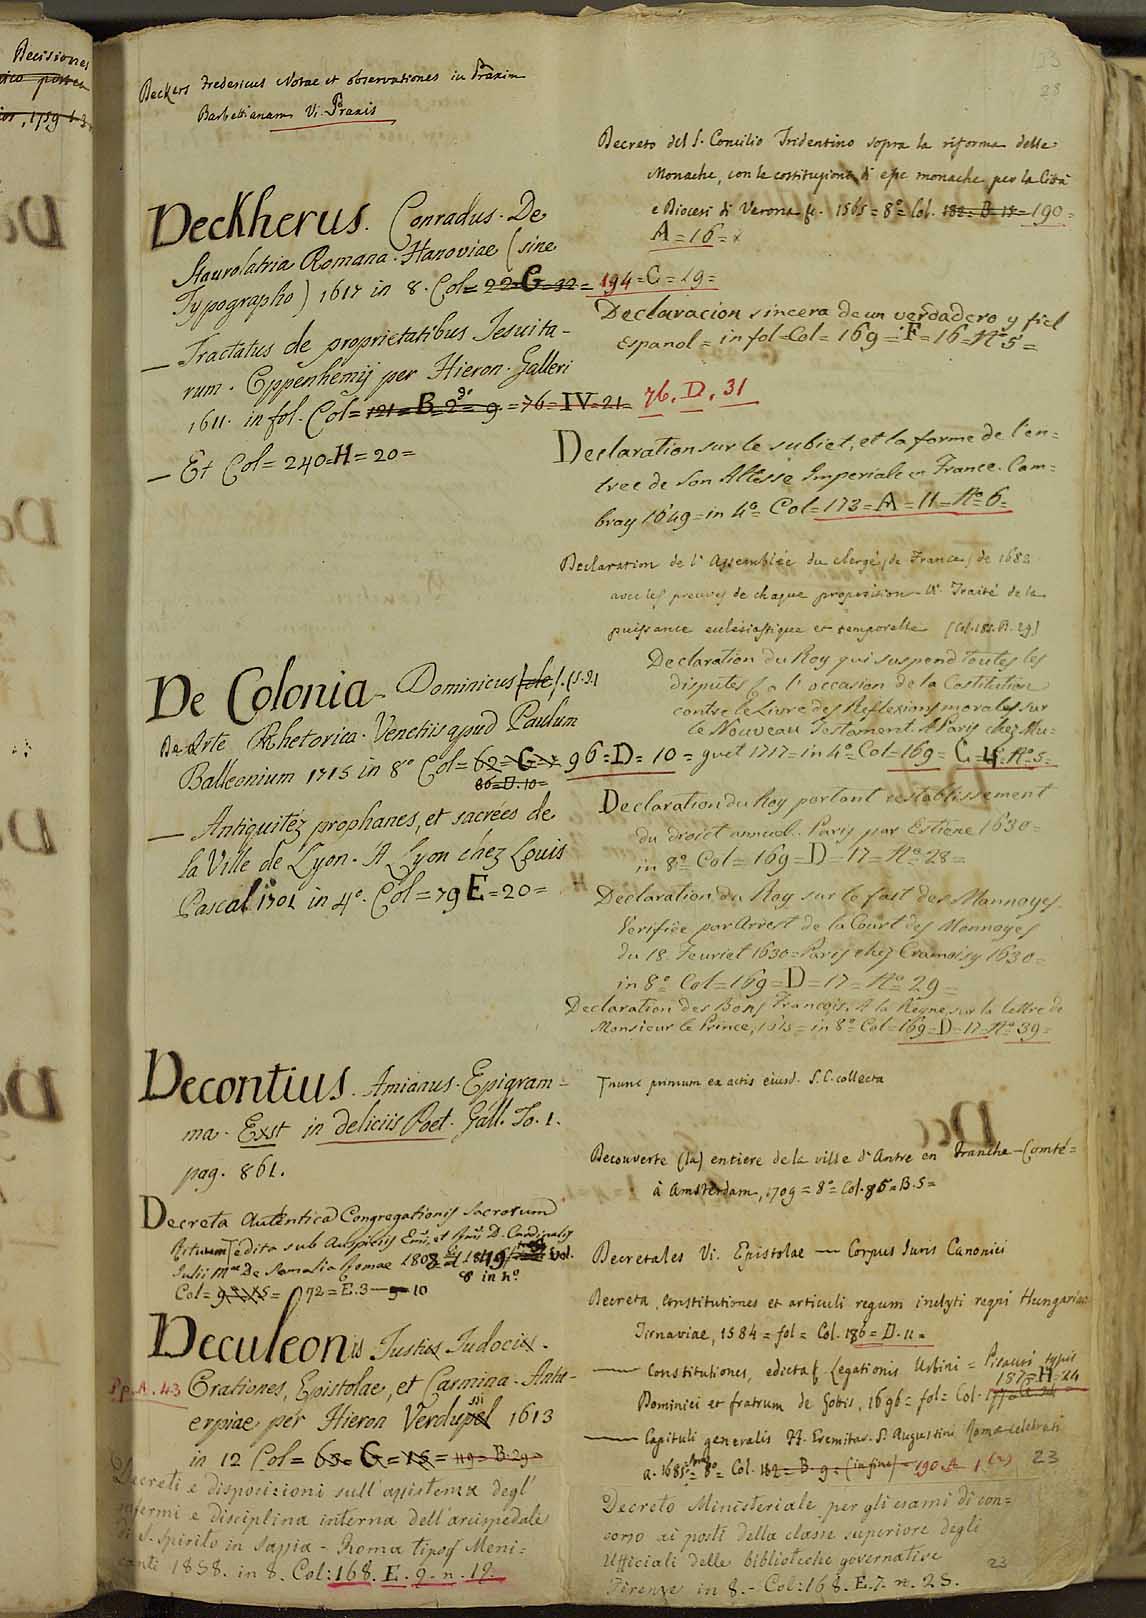 Decisiones
1759
Deckers Fredericus Notae et observationes in Praxim
Barbettianam Vi. Praxis
Deckherus. Conradus. De
Staurolatria Romana. Hanoviae (sine
Typographo) 1617 in 8. Col= 22=G=32= 194=C=29=
— Tractatus de proprietatibus Jesuita-
rum. Oppenhemij per Hieron. Galleri
1611. in fol. Col= 121=B=2=9 =76=IV=21= 76. D. 31
— Et Col= 240=H=20=
De Colonia - Dominicus (de) (S.J.)
De Arte Rhetorica. Venetiis apud Paulum
Balleonium 1715 in 8° Col= 62=G=7 96=D=10=
86=D.10=
— Antiquitéz prophanes, et sacrées de
la Ville de Lyon. A Lyon chez Louis
Pascal 1701 in 4°. Col=79 E=20=
Decontius. Amianus. Epigram=
ma. Exst in deliciis Poet. Gall. To. 1.
pag. 861.
Decreta Autentica Congregationis Sacrorum
Rituum edita sub Auspiciis Emi. et Rmi D. Cardinalis
Julii Mae De Somalia Romae 1808 vol.
8 in n°
Col= 72=E.3— 10
Deculeonis Justi Judoci.
Pp. A. 43 Orationes, Epistolae, et Carmina. Antu-
erpiae per Hieron Verdussii 1613
in 12 Col= 63= G=15= 119=B.29=
Decreti e disposizioni sull'assistenza degl'
infermi e disciplina interna dell'arcispedale
di S. Spirito in Sassia - Roma tipog Meni=
canti 1858. in 8. Col:168. E. 9. n. 19.
23
28
Decreto del S. Concilio Tridentino sopra la riforma delle
Monache, con le costituzioni di esse monache per la Città
e Diocesi di Verona &c. 1565=8°= Col. 182=B.17= 190=
A=16=
Declaracion sincera de un verdadero y fiel
Espanol= in fol=Col= 169=F=16=N° 5=
Declaration sur le subiet, et la forme de l'en=
tree de Son Altesse Imperiale en France. Cam=
bray 1649=in 4°= Col=173=A=11=N° 6=
Declaration de l'Assemblée du clergé de France de 1682
avec les preuves de chaque proposition - V. Traité de la
puissance eclésiastique et temporelle (Col.182.B.29)
Declaration du Roy qui suspend toutes les
disputes &c a l'occasion de la Costitution
contre le Livre des Reflexions morales sur
le Nouveau Testament. A Paris chez Mu=
guet 1717=in 4°=Col=169= C=4=N° 5=
Declaration du Roy portant restablissement
du droict annuel. Paris par Estiene 1630=
in 8° Col=169=D=17=N° 28=
Declaration du Roy sur le fait des Monnoyes.
Verifiée par Arrest de la Court des Monnoyes
du 18. Feuriel 1630=Paris chez Cramoisy 1630=
in 8° Col=169=D=17=N° 29=
Declaration des Bons François. A la Regne, sur la lettre de
Monsieur le Prince, 1615=in 8°=Col=169=D=17=N° 39=
nunc primum ex actis eiusd. S. C. collecta
Decouverte (la) entiere de la ville d'Antre en Franche-Comté=
à Amsterdam, 1709=8°=Col.85=B.5=
Decretales Vi. Epistolae — Corpus Juris Canonici
Decreta, Constitutiones et articuli regum inclyti regni Hungariae
Tirnaviae, 1584=fol= Col. 186=D.11=
— Constitutiones, edicta &c. Legationis Urbini = Pisauri typis
187=H=24
Dominici et fratrum de Gotis, 1696=fol= Col.
— Capituli generalis FF. Eremitar. S. Augustini Romae celebrati
a. 1685= 8° Col. 182=B.9=(in fine)=190.A 1(2) 23
Decreto Ministeriale per gli esami di con=
corso ai posti della classe superiore degli
Ufficiali delle biblioteche governative
Firenze in 8.- Col:168.E.7. n. 28.
23